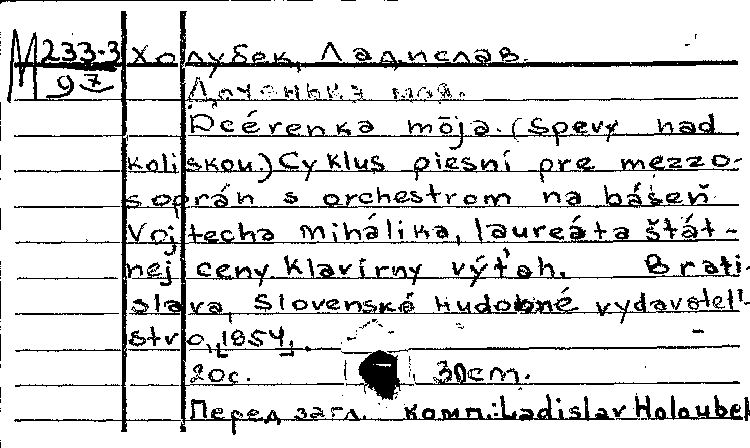 М 233-3 Холубек, Ладислав.
97 Доченька моя.
Dcérenka mōja. (Spevy nad
kolískou.) Cyklus piesní pre mezzo-
soprán s orchestrom na báseň
Vojtecha Mihálika, laureáta štát-
nej ceny. Klavírny výťah. Brati-
slava, Slovenské Hudobné vydavateľ-
stvo, [1954].
20с. 30cm.
Перед загл. комп.: Ladislav Holoubek